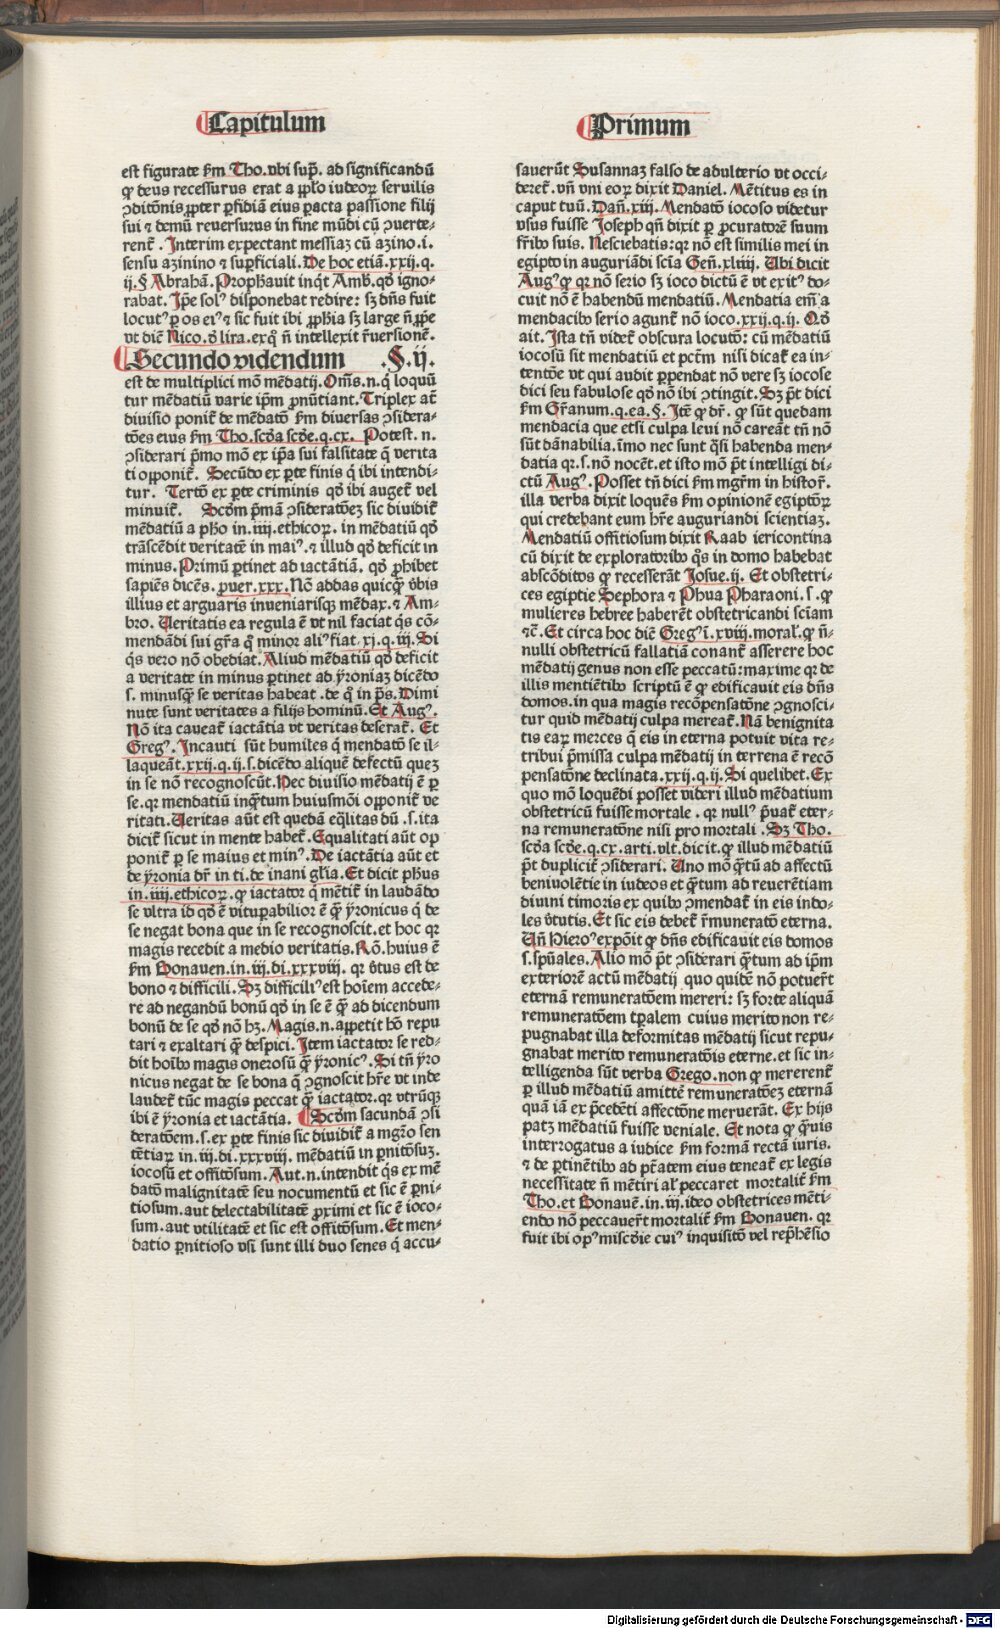 Capitulum
est figurate ẜm Tho. vbi sup̄. ad significandū
ꝙ deus recessurus erat a ꝓp̄lo iudeoꝝ seruilis
ↄditōnis ꝓpter ꝑfidiā eius ꝑacta passione filij
sui ⁊ demū reuersurus in fine mūdi cū ↄuerte-
rent̄. Interim expectant messiaꝫ cū azino .i.
sensu azinino ⁊ suꝑficiali. De hoc etiā .xxij. q.
ij. § Abrahā. Prophauit inqͥt Amb. qđ igno-
rabat. Ip̄e solꝰ disponebat redire: sꝫ dn̄s fuit
locutꝰ ꝑ os eiꝰ ⁊ sic fuit ibi ꝓphīa sꝫ large n̄ ꝓpe
vt diē Nico. đ lira. ex q̄ n̄ intellexit r̄uersionē.
Secundo videndum .§. ij.
est de multiplici mō mēdatij. Om̄s .n. qͥ loquū
tur mēdatiū varie ip̄m ꝓnūtiant. Triplex at̄
diuisio ponit̄ de mēdatō ẜm diuersas ↄsidera-
tōes eius ẜm Tho. scđa scđe. q. cx. Potest .n.
ↄsiderari p̄mo mō ex ip̄a sui falsitate q̄ verita
ti opponit̄. Secūdo ex ꝑte finis qͥ ibi intendi-
tur. Tertō ex ꝑte criminis qđ ibi auget̄ vel
minuit̄. Scđm p̄mā ↄsideratōeꝫ sic diuidit̄
mēdatiū a pho in .iiij. ethicoꝝ. in mēdatiū qđ
trāscēdit veritatē in maiꝰ. ⁊ illud qđ deficit in
minus. Primū ꝑtinet ad iactātiā. qđ ꝓhibet
sapiēs dicēs. ꝓuer. xxx. Nō addas quicq̄ ꝟbis
illius et arguaris inueniarisqꝫ mēdax. ⁊ Am-
bro. Ueritatis ea regula ē vt nil faciat qͥs cō-
mendādi sui gr̄a qͦ minor aliꝰ fiat. xj. q. iij. Si
qͥs vero nō obediat. Aliud mēdatiū qđ deficit
a veritate in minus ꝑtinet ad yroniaꝫ dicēdo
s. minusqꝫ se veritas habeat. de qͦ in ps̄. Dimi
nute sunt veritates a filijs hominū. Et Augꝰ.
Nō ita caueat̄ iactātia vt veritas deserat̄. Et
Gregꝰ. Incauti sūt humiles qͥ mendatō se il-
laqueāt. xxij. q. ij. s. dicēdo aliquē defectū queꝫ
in se nō recognoscūt. Nec diuisio mēdatij ē ꝑ
se. qꝛ mendatiū inqͣtum huiusmōi opponit̄ ve
ritati. Ueritas aūt est quedā eqͣlitas dū .s. ita
dicit̄ sicut in mente habet̄. Equalitati aūt op
ponit̄ ꝑ se maius et minꝰ. De iactātia aūt et
de yronia dr̄ in ti. de inani gl̄ia. Et dicit phus
in .iiij. ethicoꝝ. ꝙ iactator qͥ mētit̄ in laudādo
se vltra id qđ ē vituꝑabilior ē q̄ yronicus qͥ de
se negat bona que in se recognoscit. et hoc qꝛ
magis recedit a medio veritatis. Rō. huius ē
ẜm Bonauen. in .iij. di. xxxviii. qꝛ ꝟtus est de
bono ⁊ difficili. Sꝫ difficiliꝰ est hoīem accede-
re ad negandū bonū qđ in se ē q̄ ad dicendum
bonū de se qđ nō hꝫ. Magis .n. appetit hō repu
tari ⁊ exaltari q̄ despici. Item iactator se red-
dit hoībꝰ magis onerosū q̄ yronicꝰ. Si tn̄ yro
nicus negat de se bona q̄ ↄgnoscit hr̄e vt inde
laudet̄ tūc magis peccat q̄ iactator. qꝛ vtrūqꝫ
ibi ē yronia et iactātia. Scđm sacundā ↄsi
deratōem .s. ex ꝑte finis sic diuidit̄ a mgr̄o sen
tētiaꝝ in .iij. di. xxxviii. mēdatiū in ꝑnitōsuꝫ.
iocosū et offitōsum. Aut .n. intendit qͥs ex mē
datō malignitatē seu nocumētū et sic ē ꝑni-
tiosum. aut delectabilitatē ꝓximi et sic ē ioco-
sum. aut vtilitatē et sic est offitōsum. Et men-
datio ꝑnitioso vsi sunt illi duo senes qͥ accu-
Primum
sauerūt Susannaꝫ falso de adulterio vt occi-
deret̄. vn̄ vni eoꝝ dixit Daniel. Mētitus es in
caput tuū. Dan̄. xiij. Mendatō iocoso videtur
vsus fuisse Joseph qn̄ dixit ꝑ ꝓcuratorē suum
fr̄ibꝰ suis. Nesciebatis: qꝛ nō est similis mei in
egipto in auguriādi sc̄ia Gen̄. xliiij. Ubi dicit
Augꝰ ꝙ qꝛ nō serio sꝫ ioco dictū ē vt exitꝰ do-
cuit nō ē habendū mendatiū. Mendatia eni̅ a
mendacibꝰ serio agunt̄ nō ioco. xxij. q. ij. Qđ
ait. Ista tn̄ videt̄ obscura locutō: cū mēdatiū
iocosū sit mendatiū et pctm̄ nisi dicat̄ ea in-
tentōe vt qui audit ꝑpendat nō vere sꝫ iocose
dici seu fabulose qđ nō ibi ↄtingit. Sꝫ p̄t dici
ẜm Gr̄anum. q. ea. §. Itē ꝙ dr̄. ꝙ sūt quedam
mendacia que etsi culpa leui nō careāt tn̄ nō
sūt dānabilia. īmo nec sunt qͣsi habenda men-
datia qꝛ .s. nō nocēt. et isto mō p̄t intelligi di-
ctū Augꝰ. Posset tn̄ dici ẜm mgr̄m in histor̄.
illa verba dixit loquēs ẜm opinionē egiptōꝝ
qui credebant eum hr̄e auguriandi scientiaꝫ.
Mendatiū offitiosum dixit Raab iericontina
cū dixit de exploratoribꝰ qͦs in domo habebat
abscōditos ꝙ recesserāt Josue. ij. Et obstetri-
ces egiptie Sephora ⁊ Phua Pharaoni .s. ꝙ
mulieres hebree haberēt obstetricandi sciam
⁊c̄. Et circa hoc diē Gregꝰ i. xviii. moral̄. ꝙ n̄-
nulli obstetricū fallatiā conant̄ asserere hoc
mēdatij genus non esse peccatū: maxime qꝛ de
illis mentiētibꝰ scriptū ē ꝙ edificauit eis dn̄s
domos. in qua magis recōpensatōne ↄgnosci-
tur quid mēdatij culpa mereat̄. Nā benignita
tis eaꝝ merces q̄ eis in eterna potuit vita re-
tribui p̄missa culpa mēdatij in terrena ē recō
pensatōne declinata. xxij. q. ij. Si quelibet. Ex
quo mō loquēdi posset videri illud mēdatium
obstetricū fuisse mortale. qꝛ nullꝰ p̄uat̄ eter-
na remuneratōne nisi pro mortali. Sꝫ Tho.
scđa scđe. q. cx. arti. vlt. dicit. ꝙ illud mēdatiū
p̄t duplicit̄ ↄsiderari. Uno mō qͣtū ad affectū
beniuolētie in iudeos et qͣtum ad reuerētiam
diuini timoris ex quibꝰ ↄmendat̄ in eis indo-
les ꝟtutis. Et sic eis debet̄ r̄muneratō eterna.
Un̄ Hieroꝰ expōit ꝙ dn̄s edificauit eis domos
s. spūales. Alio mō p̄t ↄsiderari qͣtum ad ip̄m
exteriorē actū mēdatij quo quidē nō potuer̄t
eternā remuneratōem mereri: sꝫ forte aliquā
remuneratōem tp̄alem cuius merito non re-
pugnabat illa deformitas mēdatij sicut repu-
gnabat merito remuneratōis eterne. et sic in-
telligenda sūt verba Grego. non ꝙ mererent̄
ꝑ illud mēdatiū amittē remuneratōeꝫ eternā
quā iā ex p̄cedēti affectōne meruerāt. Ex hijs
patꝫ mēdatiū fuisse veniale. Et nota ꝙ qͣuis
interrogatus a iudice ẜm formā rectā iuris.
⁊ de ꝑtinētibꝰ ad p̄tatem eius teneat̄ ex legis
necessitate n̄ mētiri al̄ peccaret mortalit̄ ẜm
Tho. et Bonauē. in .iij. ideo obstetrices mēti-
endo nō peccauer̄t mortalit̄ ẜm Bonauen. qꝛ
fuit ibi opꝰ misc̄đie cuiꝰ inquisitō vel rep̄hēsio
Digitalisierung gefördert durch die Deutsche Forschungsgemeinschaft - DFG